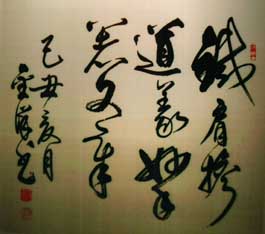 鐵肩擔
道義妙手
著文章
己丑夏月
书